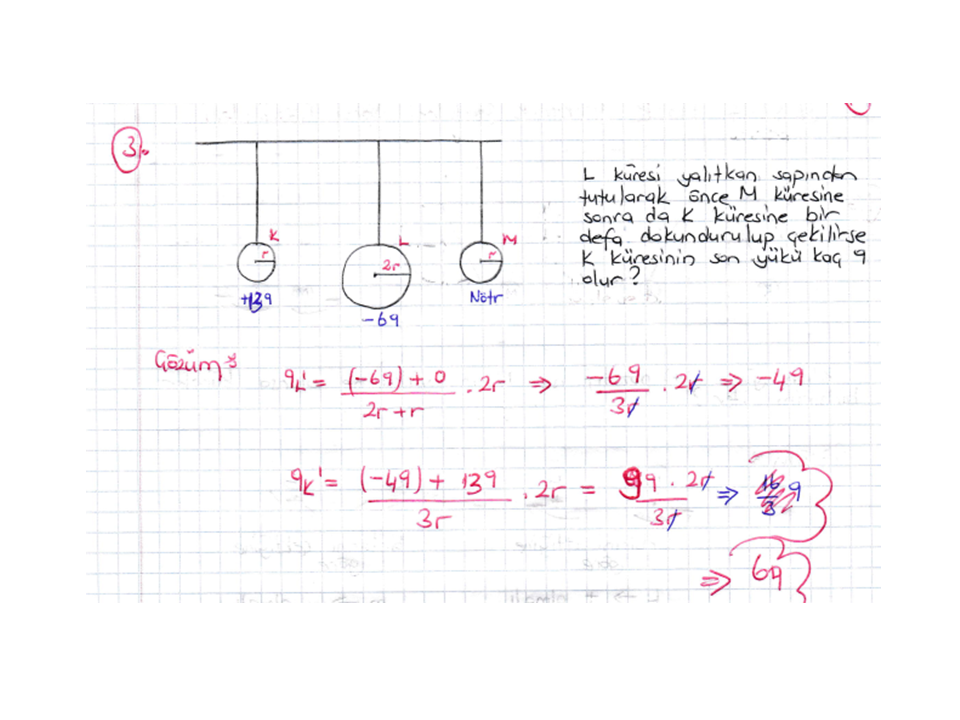 3.
K
L
M
r
2r
r
+13q
-6q
Nötr
L küresi yalıtkan sapından
tutularak önce M küresine
sonra da K küresine bir
defa dokundurulup çekilirse
K küresinin son yükü kaç q
olur?
Çözüm:
qL' = (-6q) + 0 / 2r + r . 2r ⇒ -6q / 3r . 2r ⇒ -4q
qK' = (-4q) + 13q / 3r . 2r = 9q . 2r / 3r ⇒ q
⇒ 6q